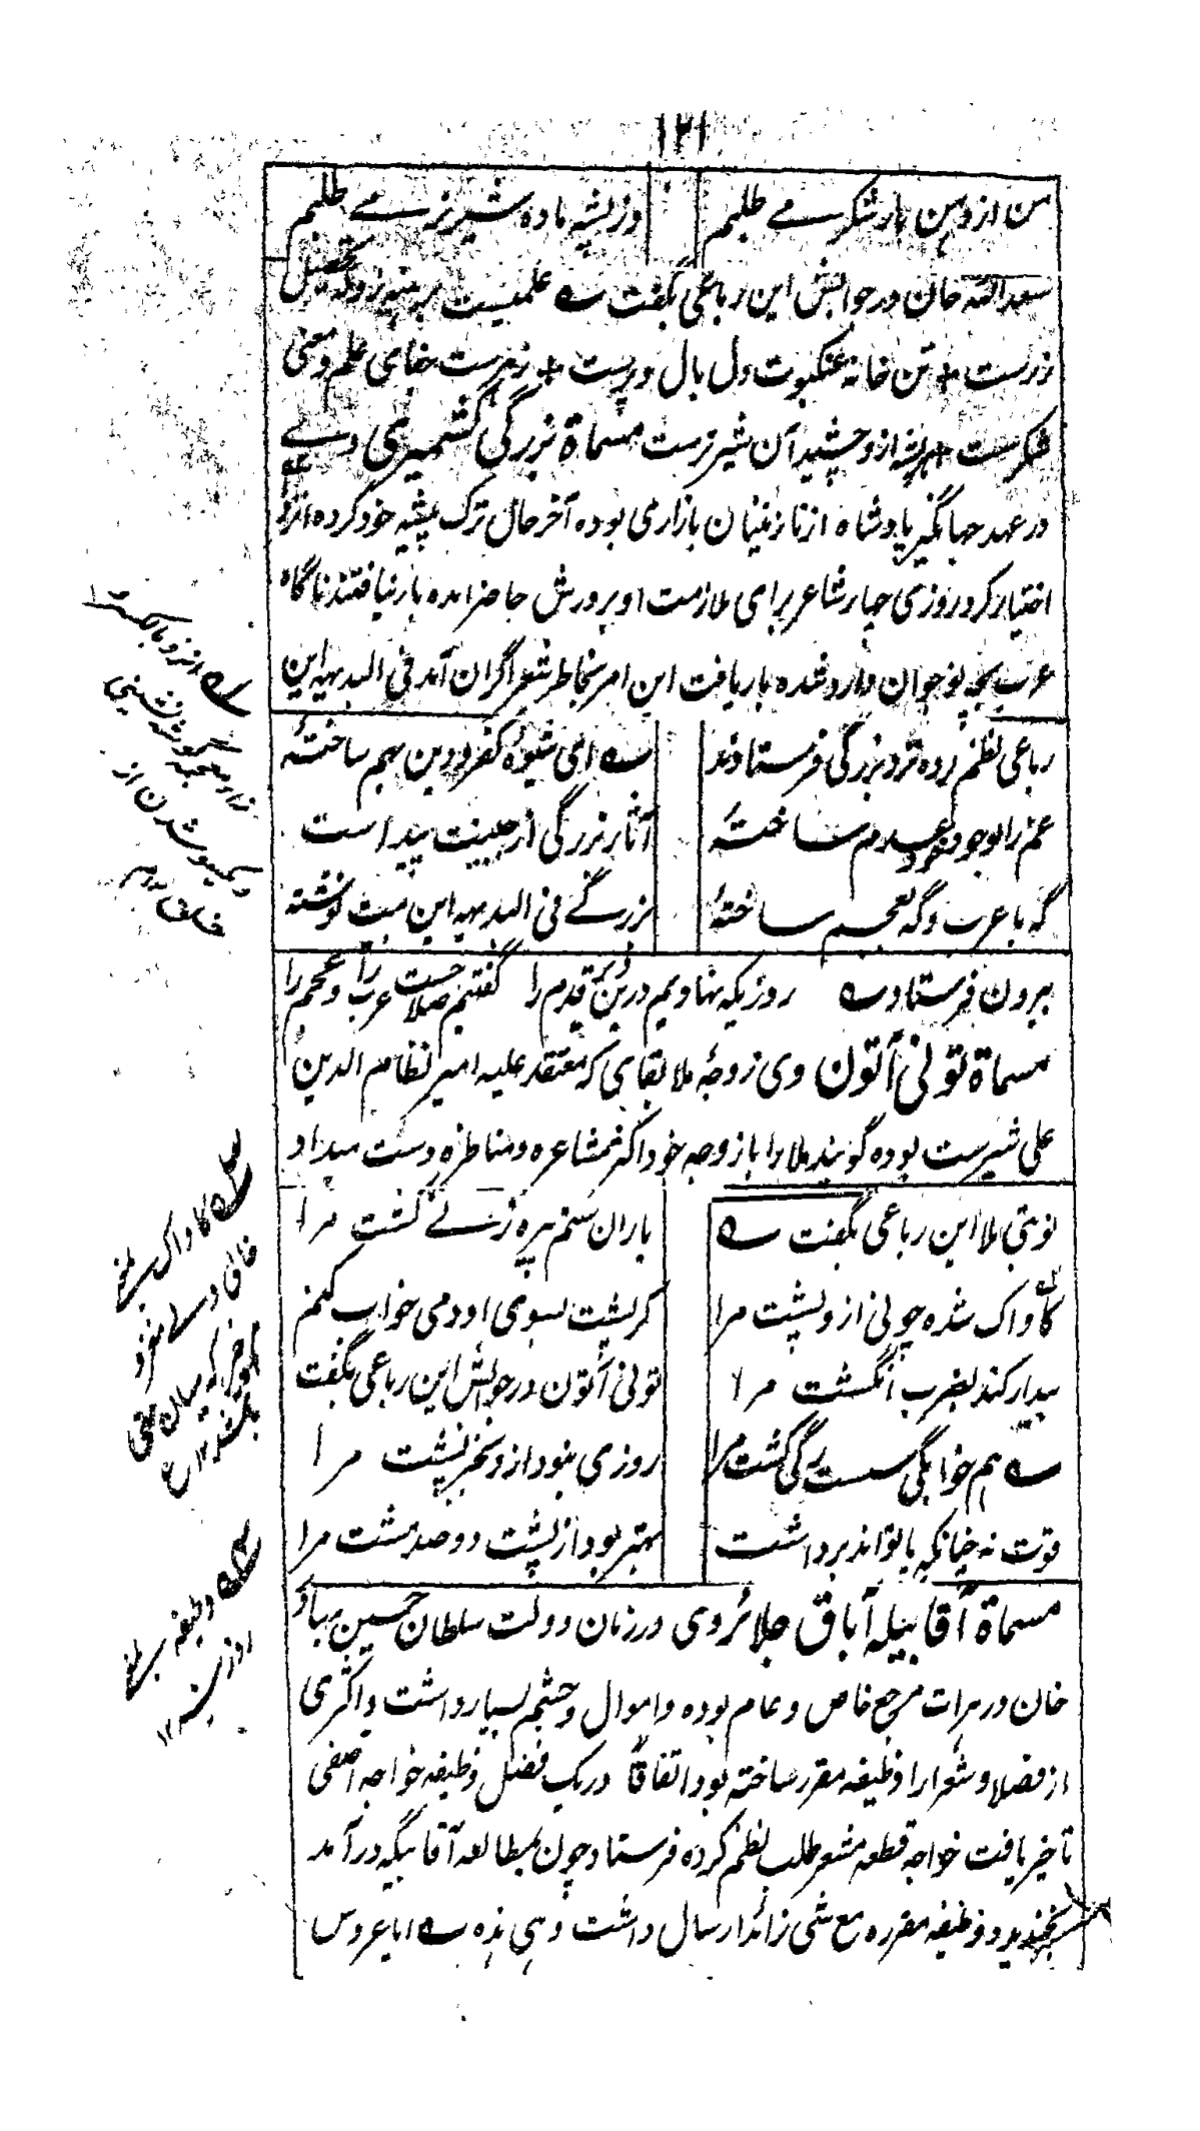 ۱۲۱
من از دهن مار شکر مے طلبم وز پشه ماده شیر نر مے طلبم
سعدالله خان در جوابش این رباعی بگفت علمیست برهنه رو که تحصیل
زرست تن خانه عنکبوت و دل بال و پرست زهرست جفای علم و معنی
شکرست هر پشه ازو چشید آن شیر نرست مسماة بزرگی کشمیری وے
در عهد جهانگیر پادشاه از نازنینان بازاری بوده آخر حال ترک پیشه خود کرده انزوا
اختیار کرد روزی چهار شاعر برای ملازمت او بر درش حاضر آمده بار نیافتند ناگاه
عرب بچه نوجوان وارد شده بار یافت این امر بخاطر شعرا گران آمد فی البدیهه این
رباعی نظم کرده نزد بزرگی فرستادند اے شیوهٔ کفر و دین بهم ساختهٔ
غم را بوجود عدم ساختهٔ آثار بزرگی از جبینت پیداست
گه با عرب و گه بعجم ساختهٔ بزرگے فی البدیهه این بیت نوشته
بیرون فرستاد روزیکه نهادیم درین دیر قدم را گفتیم صلاحست عرب را و عجم را
مسماة تونی آتون وی زوجهٔ ملا بقای که معتقد علیه امیر نظام الدین
علی شیرست بوده گویند ملا را با زوجه خود اکثر مشاعره و مناظره دست میداد
نوبتی ملا این رباعی بگفت یاران ستم پیره زنے کشت مرا
کاواک شده چو نی ازو پشت مرا گر پشت بسوی او دمی خواب کنم
بیدار کند بضرب انگشت مرا تونی آتون در جوابش این رباعی بگفت
هم خوابگی سست رگی کشت مرا روزی نبود ازو بجز پشت مرا
قوت نه چنانکه پا تواند برداشت بهتر بود از پشت دو صد مشت مرا
مسماة آقا بیگه آباق جلائر وی در زمان دولت سلطان حسین بهادر
خان در هرات مرجع خاص و عام بوده و اموال و حشم بسیار داشت و اکثری
از فضلا و شعرا را وظیفه مقرر ساخته بود اتفاقاً در یک فصل وظیفه خواجه آصفی
تاخیر یافت خواجه قطعه مشعر طلب نظم کرده فرستاد چون بمطالعه آقا بیگه در آمد
بخندید و وظیفه مقرره مع شی زائد ارسال داشت و هی هذه ایا عروس
انزوا بالکسر
گوشه نشینی
و یکسو شدن از
کاواک
خالی و بے مغز
میان تهی
باشد ۱۲
وظیفه
روزینه ۱۲